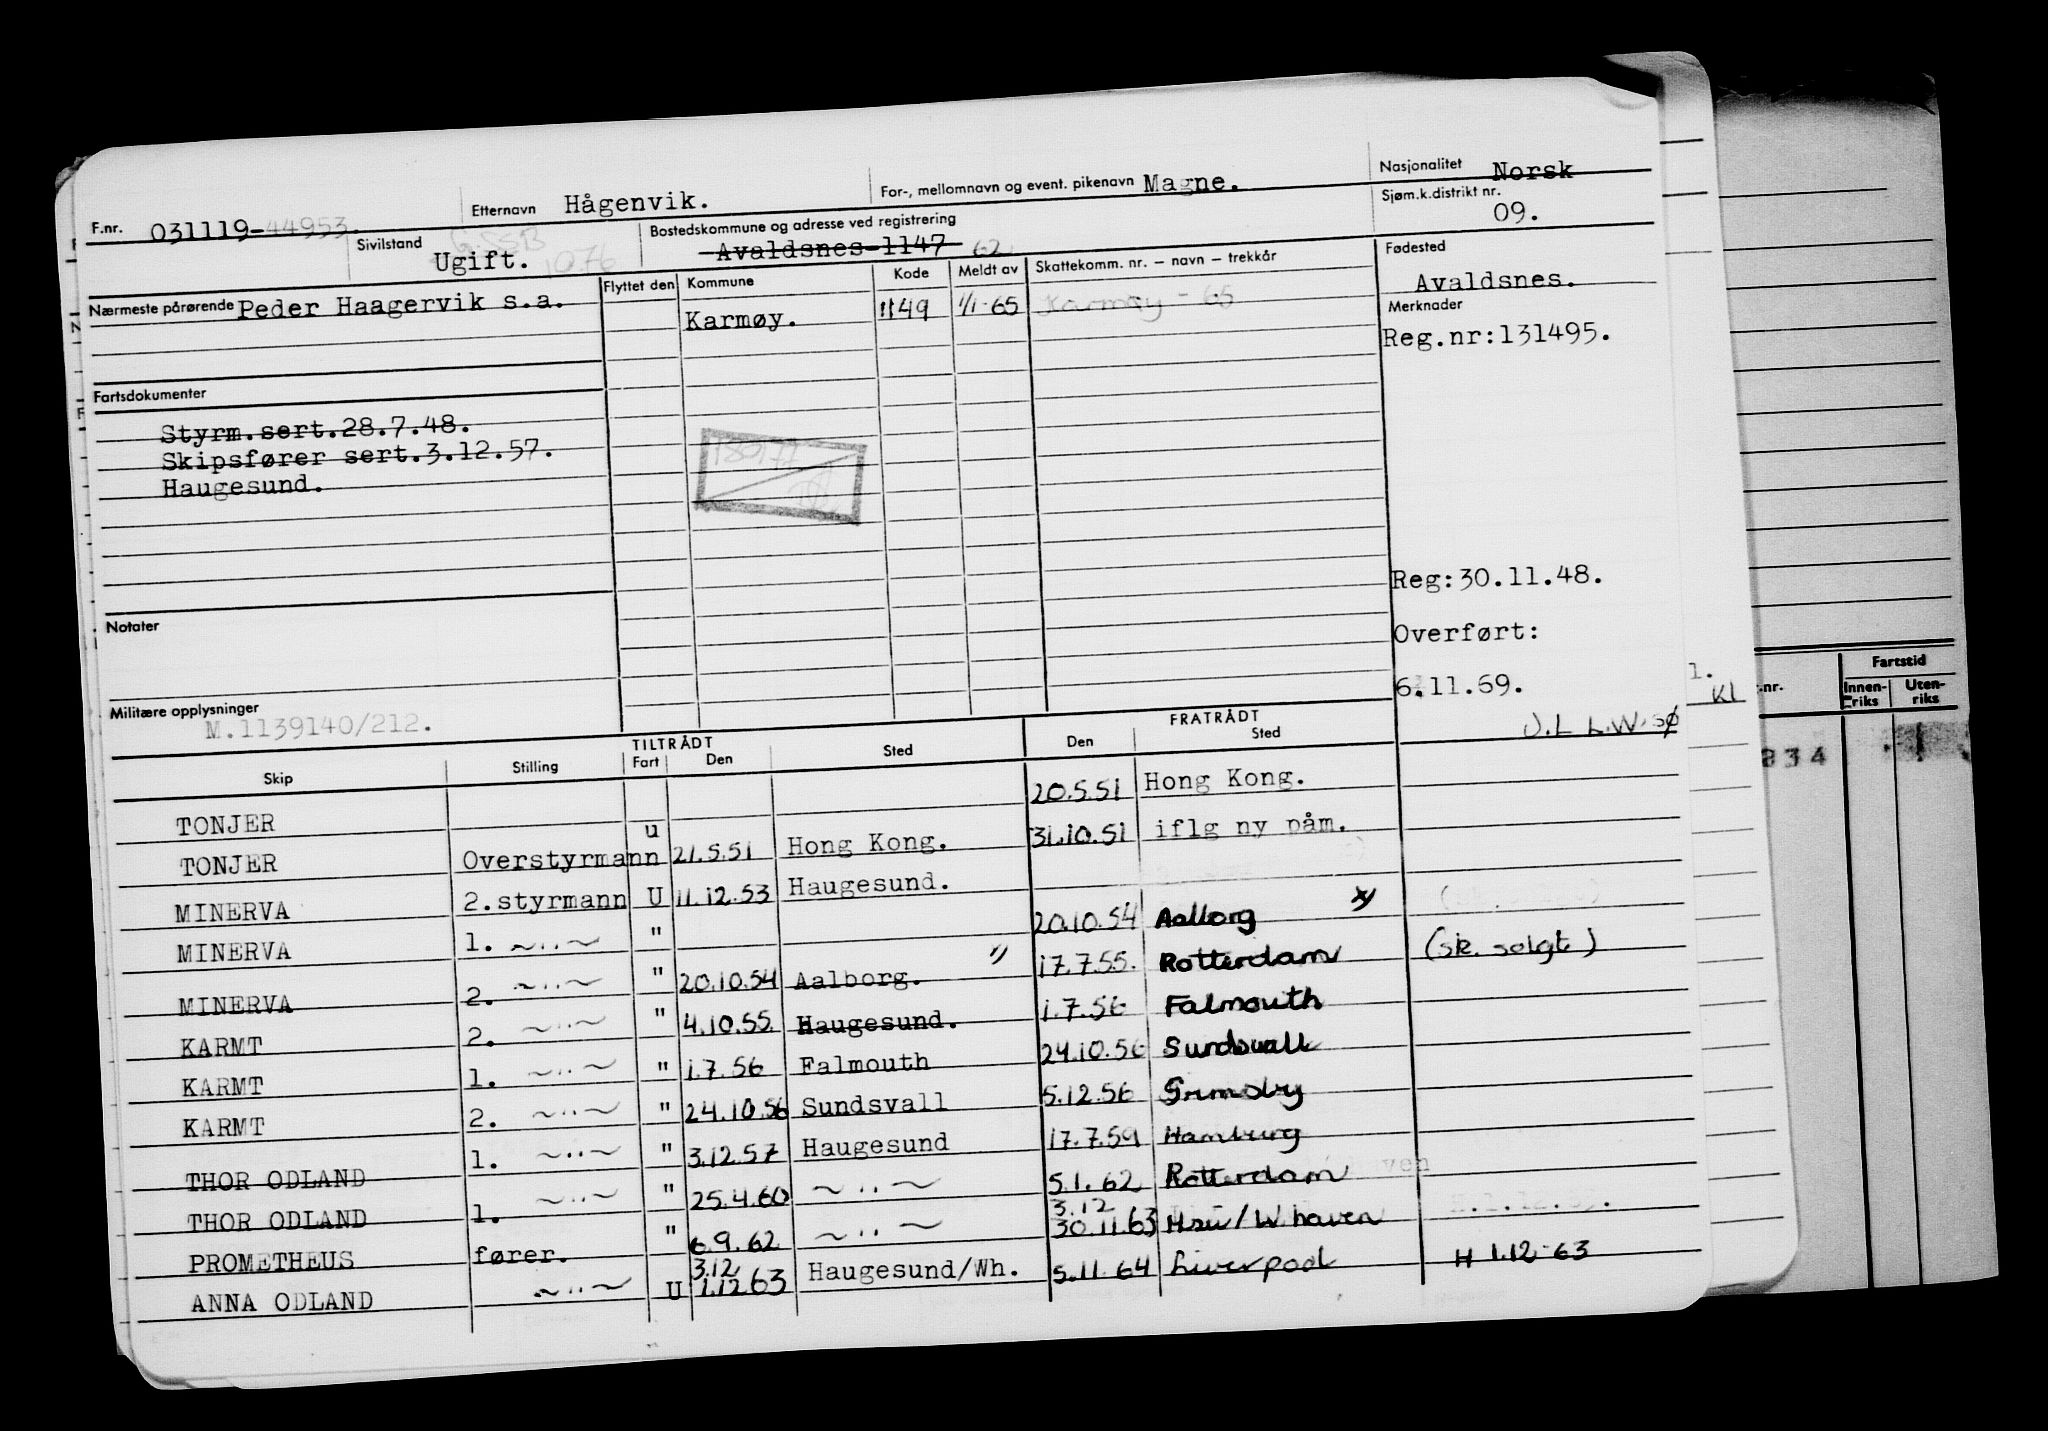 F.nr. 031119-44953.
Etternavn Hågenvik.
For-, mellomnavn og event. pikenavn Magne.
Nasjonalitet Norsk
Sivilstand Ugift.
Bostedskommune og adresse ved registrering
Avaldsnes-1147 62
Sjøm.k.distrikt nr.
09.
Nærmeste pårørende Peder Haagervik s.a.
Flyttet den Kommune Kode Meldt av Skattekomm. nr. – navn – trekkår
Karmøy. 1149 1/1-65 Karmøy - 65
Fødested
Avaldsnes.
Merknader
Reg.nr:131495.
Fartsdokumenter
Styrm.sert.28.7.48.
Skipsfører sert.3.12.57.
Haugesund.
Reg:30.11.48.
Notater
Overført:
6.11.69.
Militære opplysninger
M.1139140/212.
TILTRÅDT FRATRÅDT
Skip Stilling Fart Den Sted Den Sted
TONJER 20.5.51 Hong Kong.
TONJER Overstyrmann u 21.5.51 Hong Kong. 31.10.51 iflg ny påm.
MINERVA 2.styrmann U 11.12.53 Haugesund.
MINERVA 1. ~..~ " 20.10.54 Aalborg x)
MINERVA 2. ~..~ " 20.10.54 Aalborg. 17.7.55. Rotterdam (sk. solgt)
KARMT 2. ~..~ " 4.10.55 Haugesund. 1.7.56 Falmouth
KARMT 1. ~..~ " 1.7.56 Falmouth 24.10.56 Sundsvall
KARMT 2. ~..~ " 24.10.56 Sundsvall 5.12.56 Grimsby
THOR ODLAND 1. ~..~ " 3.12.57 Haugesund 17.7.59 Hamburg
THOR ODLAND 1. ~..~ " 25.4.60 ~..~ 5.1.62 Rotterdam
PROMETHEUS fører. " 6.9.62 ~..~ 3.12 30.11.63 Hsu/W.haven
ANNA ODLAND ~..~ U 3.12 1.12 63 Haugesund/Wh. 5.11 64 Liverpool H 1.12-63
1.
Kl
Fartstid
Innen-riks
Uten-riks
834